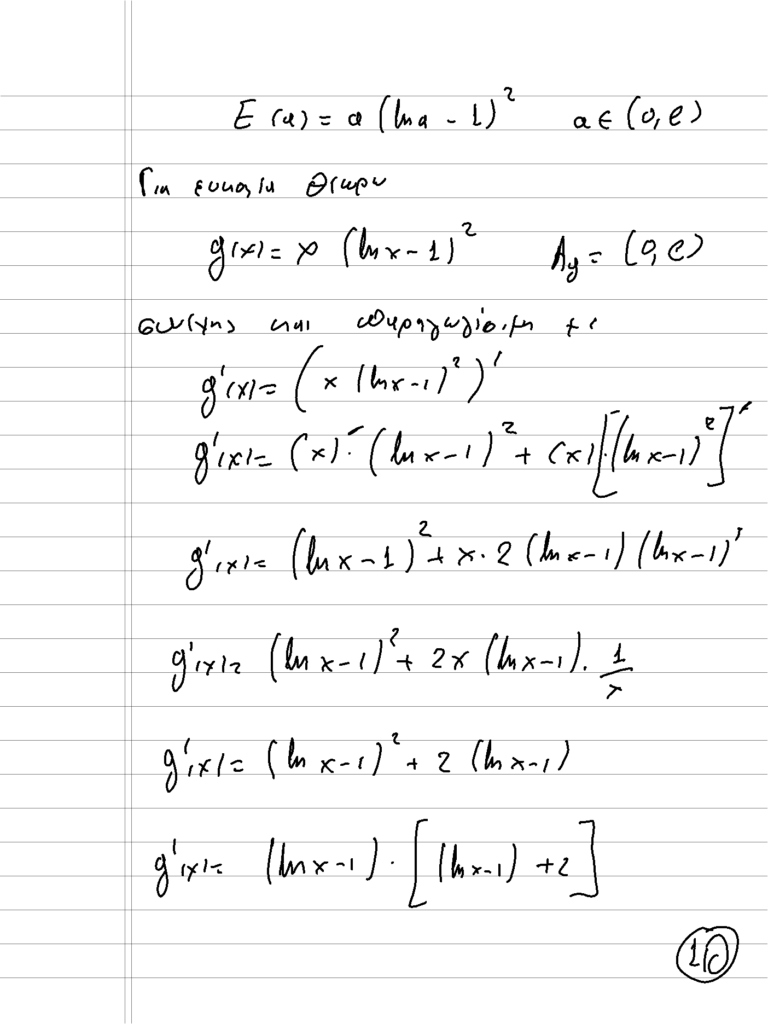 E(α) = α (lnα - 1)² α ∈ (0, e)
Για ευκολία θεωρώ
g(x) = x (lnx - 1)² Ag = (0, e)
συνεχης και παραγωγίσιμη με
g'(x) = (x (lnx-1)²)'
g'(x) = (x)' · (lnx-1)² + (x) · [(lnx-1)²]'
g'(x) = (lnx-1)² + x · 2 (lnx-1) (lnx-1)'
g'(x) = (lnx-1)² + 2x (lnx-1) · 1/x
g'(x) = (lnx-1)² + 2 (lnx-1)
g'(x) = (lnx-1) · [(lnx-1) + 2]
10